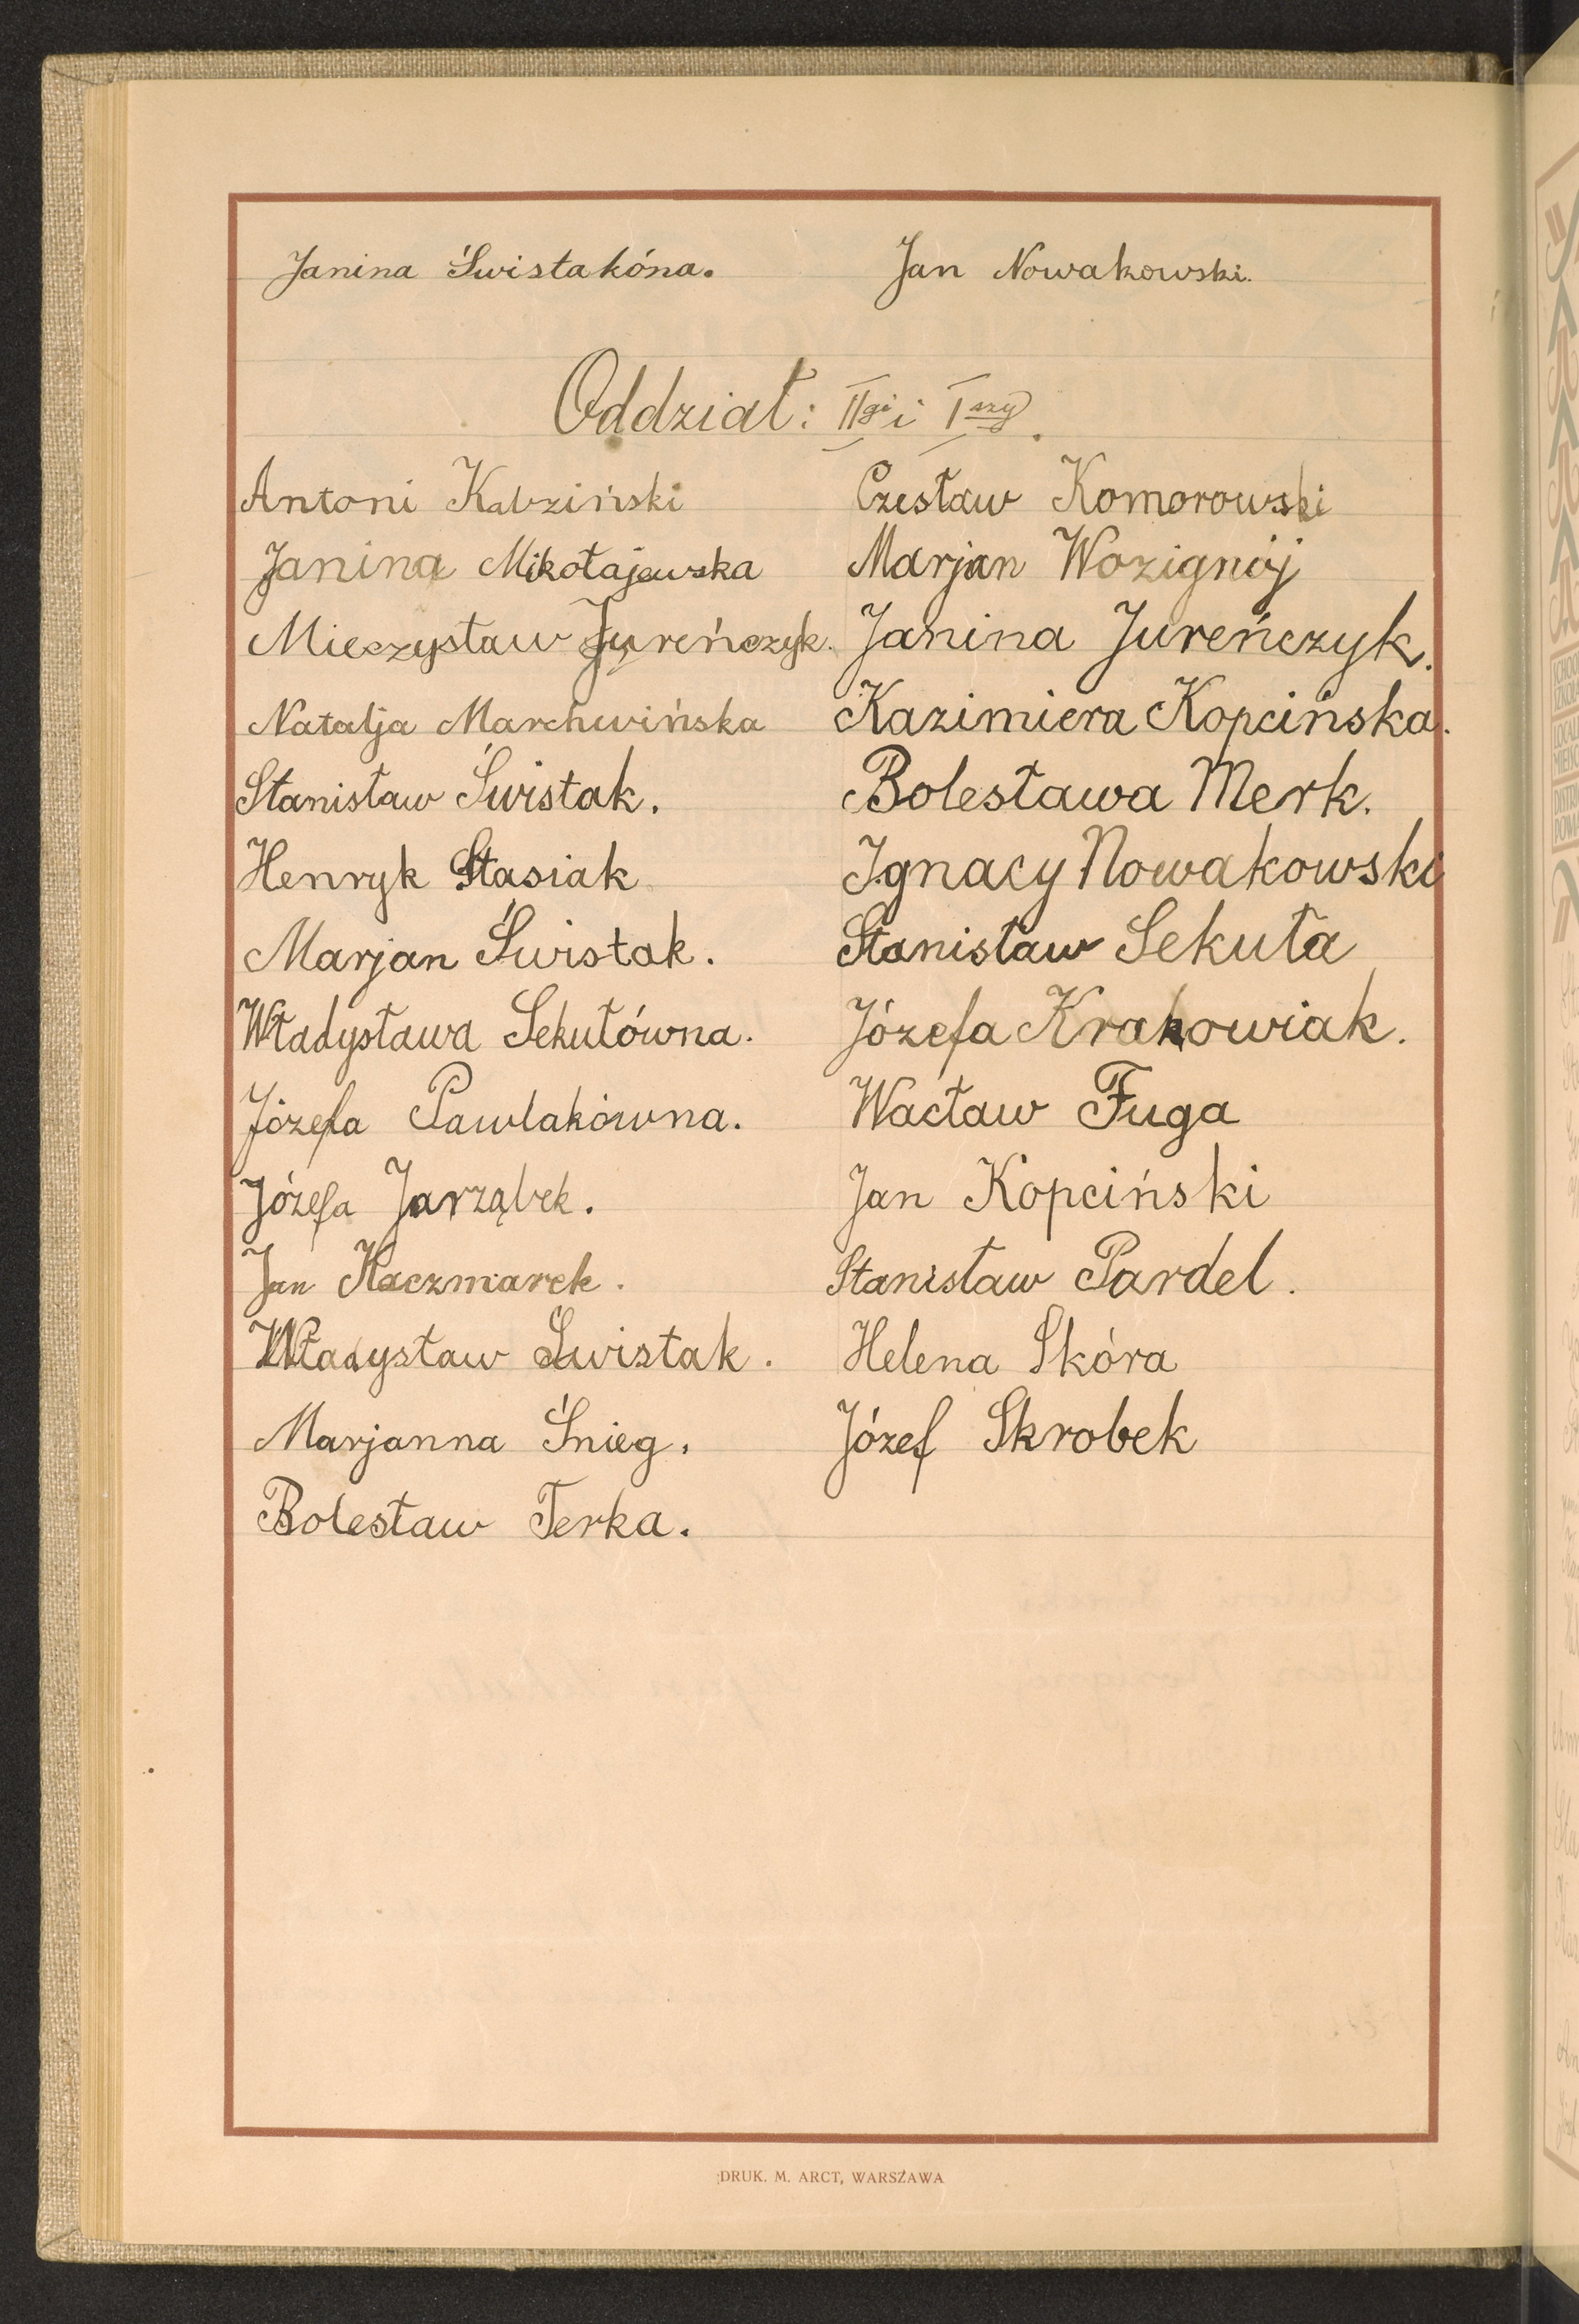 Janina Świstakóna. Jan Nowakowski.
Oddział: IIgi i Iszy.
Antoni Kabziński Czesław Komorowski
Janina Mikołajewska Marjan Wozignój
Mieczysław Jureńczyk. Janina Jureńczyk.
Natalja Marchwińska Kazimiera Kopcińska.
Stanisław Świstak. Bolesława Merk.
Henryk Stasiak Ignacy Nowakowski
Marjan Świstak. Stanisław Sekuła
Władysława Sekułówna. Józefa Krakowiak.
Józefa Pawlakówna. Wacław Fuga
Józefa Jarząbek. Jan Kopciński
Jan Kaczmarek. Stanisław Pardel.
Władysław Świstak. Helena Skóra
Marjanna Śnieg. Józef Skrobek
Bolesław Terka.
DRUK. M. ARCT, WARSZAWA